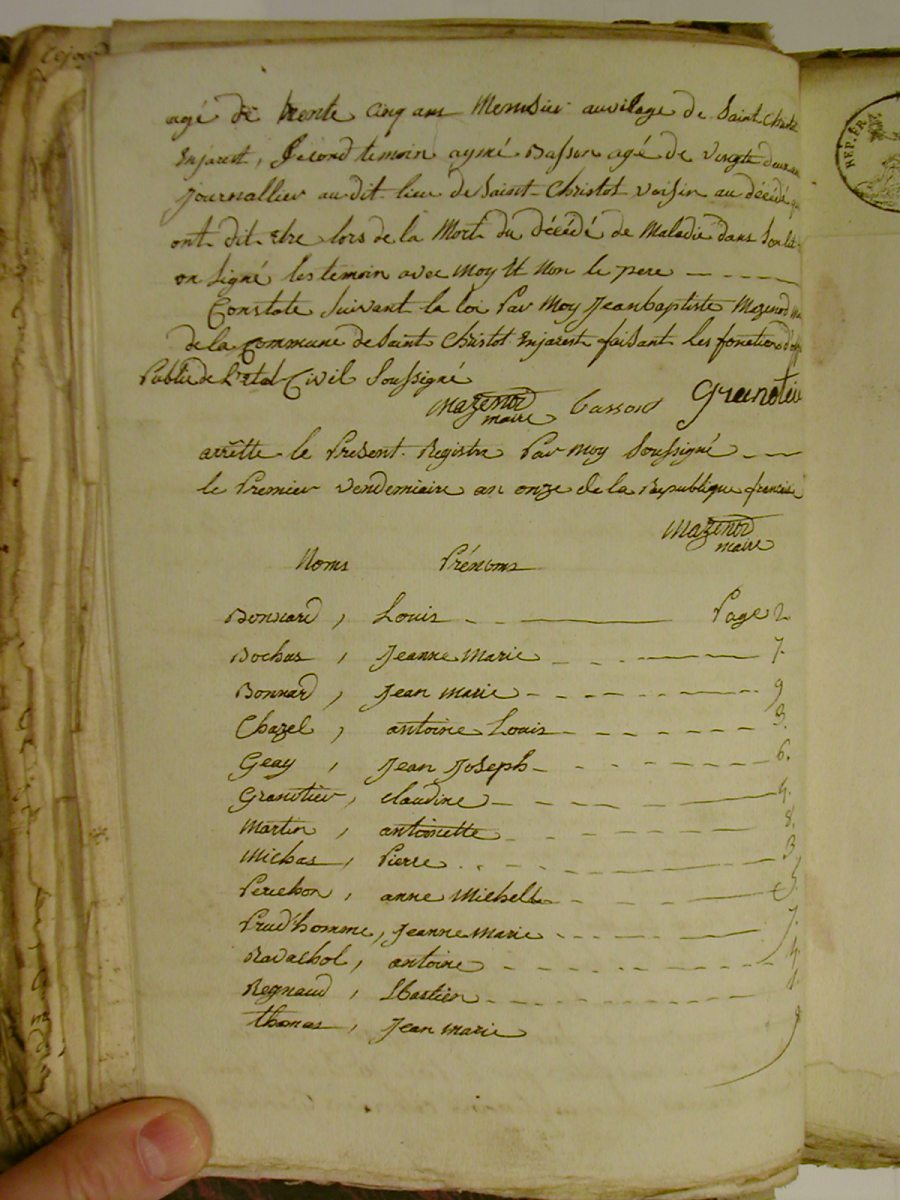 agé de trente cinq ans Menusier auvilage de Saint Christot
Enjarest, Second temoin aymé Basson agé de vingte deux an
journallier au dit lieu de Saint Christot voisin au décédé qui
ont dit Etre lors de la Mort du décédé de Maladie dans Son lit
on signé les temoin avec Moy Et Non le pere
Constate Suivant la loi Par Moy Jeanbaptiste Mazenod
de la Commune de Saint Christot Enjarest faisant les fonctions
Public de L'etat Civil Soussigné
Mazenod maire basson Granotier
arrêtte le Present Registre Par Moy Soussigné
le Premier Vendemiaire an onze de la Republique francaise
Mazenod
maire
Noms Prénoms
Bonnard, Louis Page 2
Bochas, Jeanne Marie 7.
Bonnard, Jean marie 9
Chazel, antoine Louis 3.
Geay, Jean Joseph 6.
Granotier, Claudine
Martin, antoinette 8.
Michas, Pierre 3
Perichon, anne Michelle 5.
Prud'homme, Jeanne Marie 7.
Ravachol, antoine 4.
Regnaud, Sbastien 1.
thomas, Jean marie 9
REP. FRA